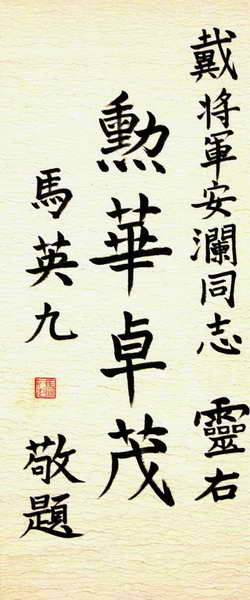 戴將軍安瀾同志 靈右
勳華卓茂
馬英九 敬題